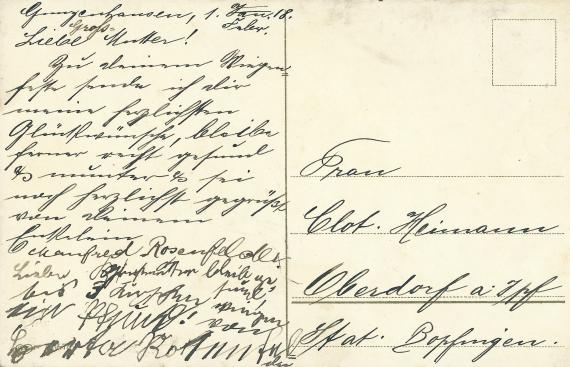 Gunzenhausen, 1. Jan. 18.
Febr.
Groß-
Liebe Mutter!
Zu deinem Wiegen
feste sende ich dir
meine herzlichsten
Glückwünsche, bleibe
ferner recht gesund
& munter & sei
noch herzlichst gegrüßt
von deinem
Enkelein
Manfred Rosenfeld
Lieber bleib ge
bis
von
Rosenfeld
Frau
Clot. Heimann
Oberdorf a. Ipf
Stat. Bopfingen.